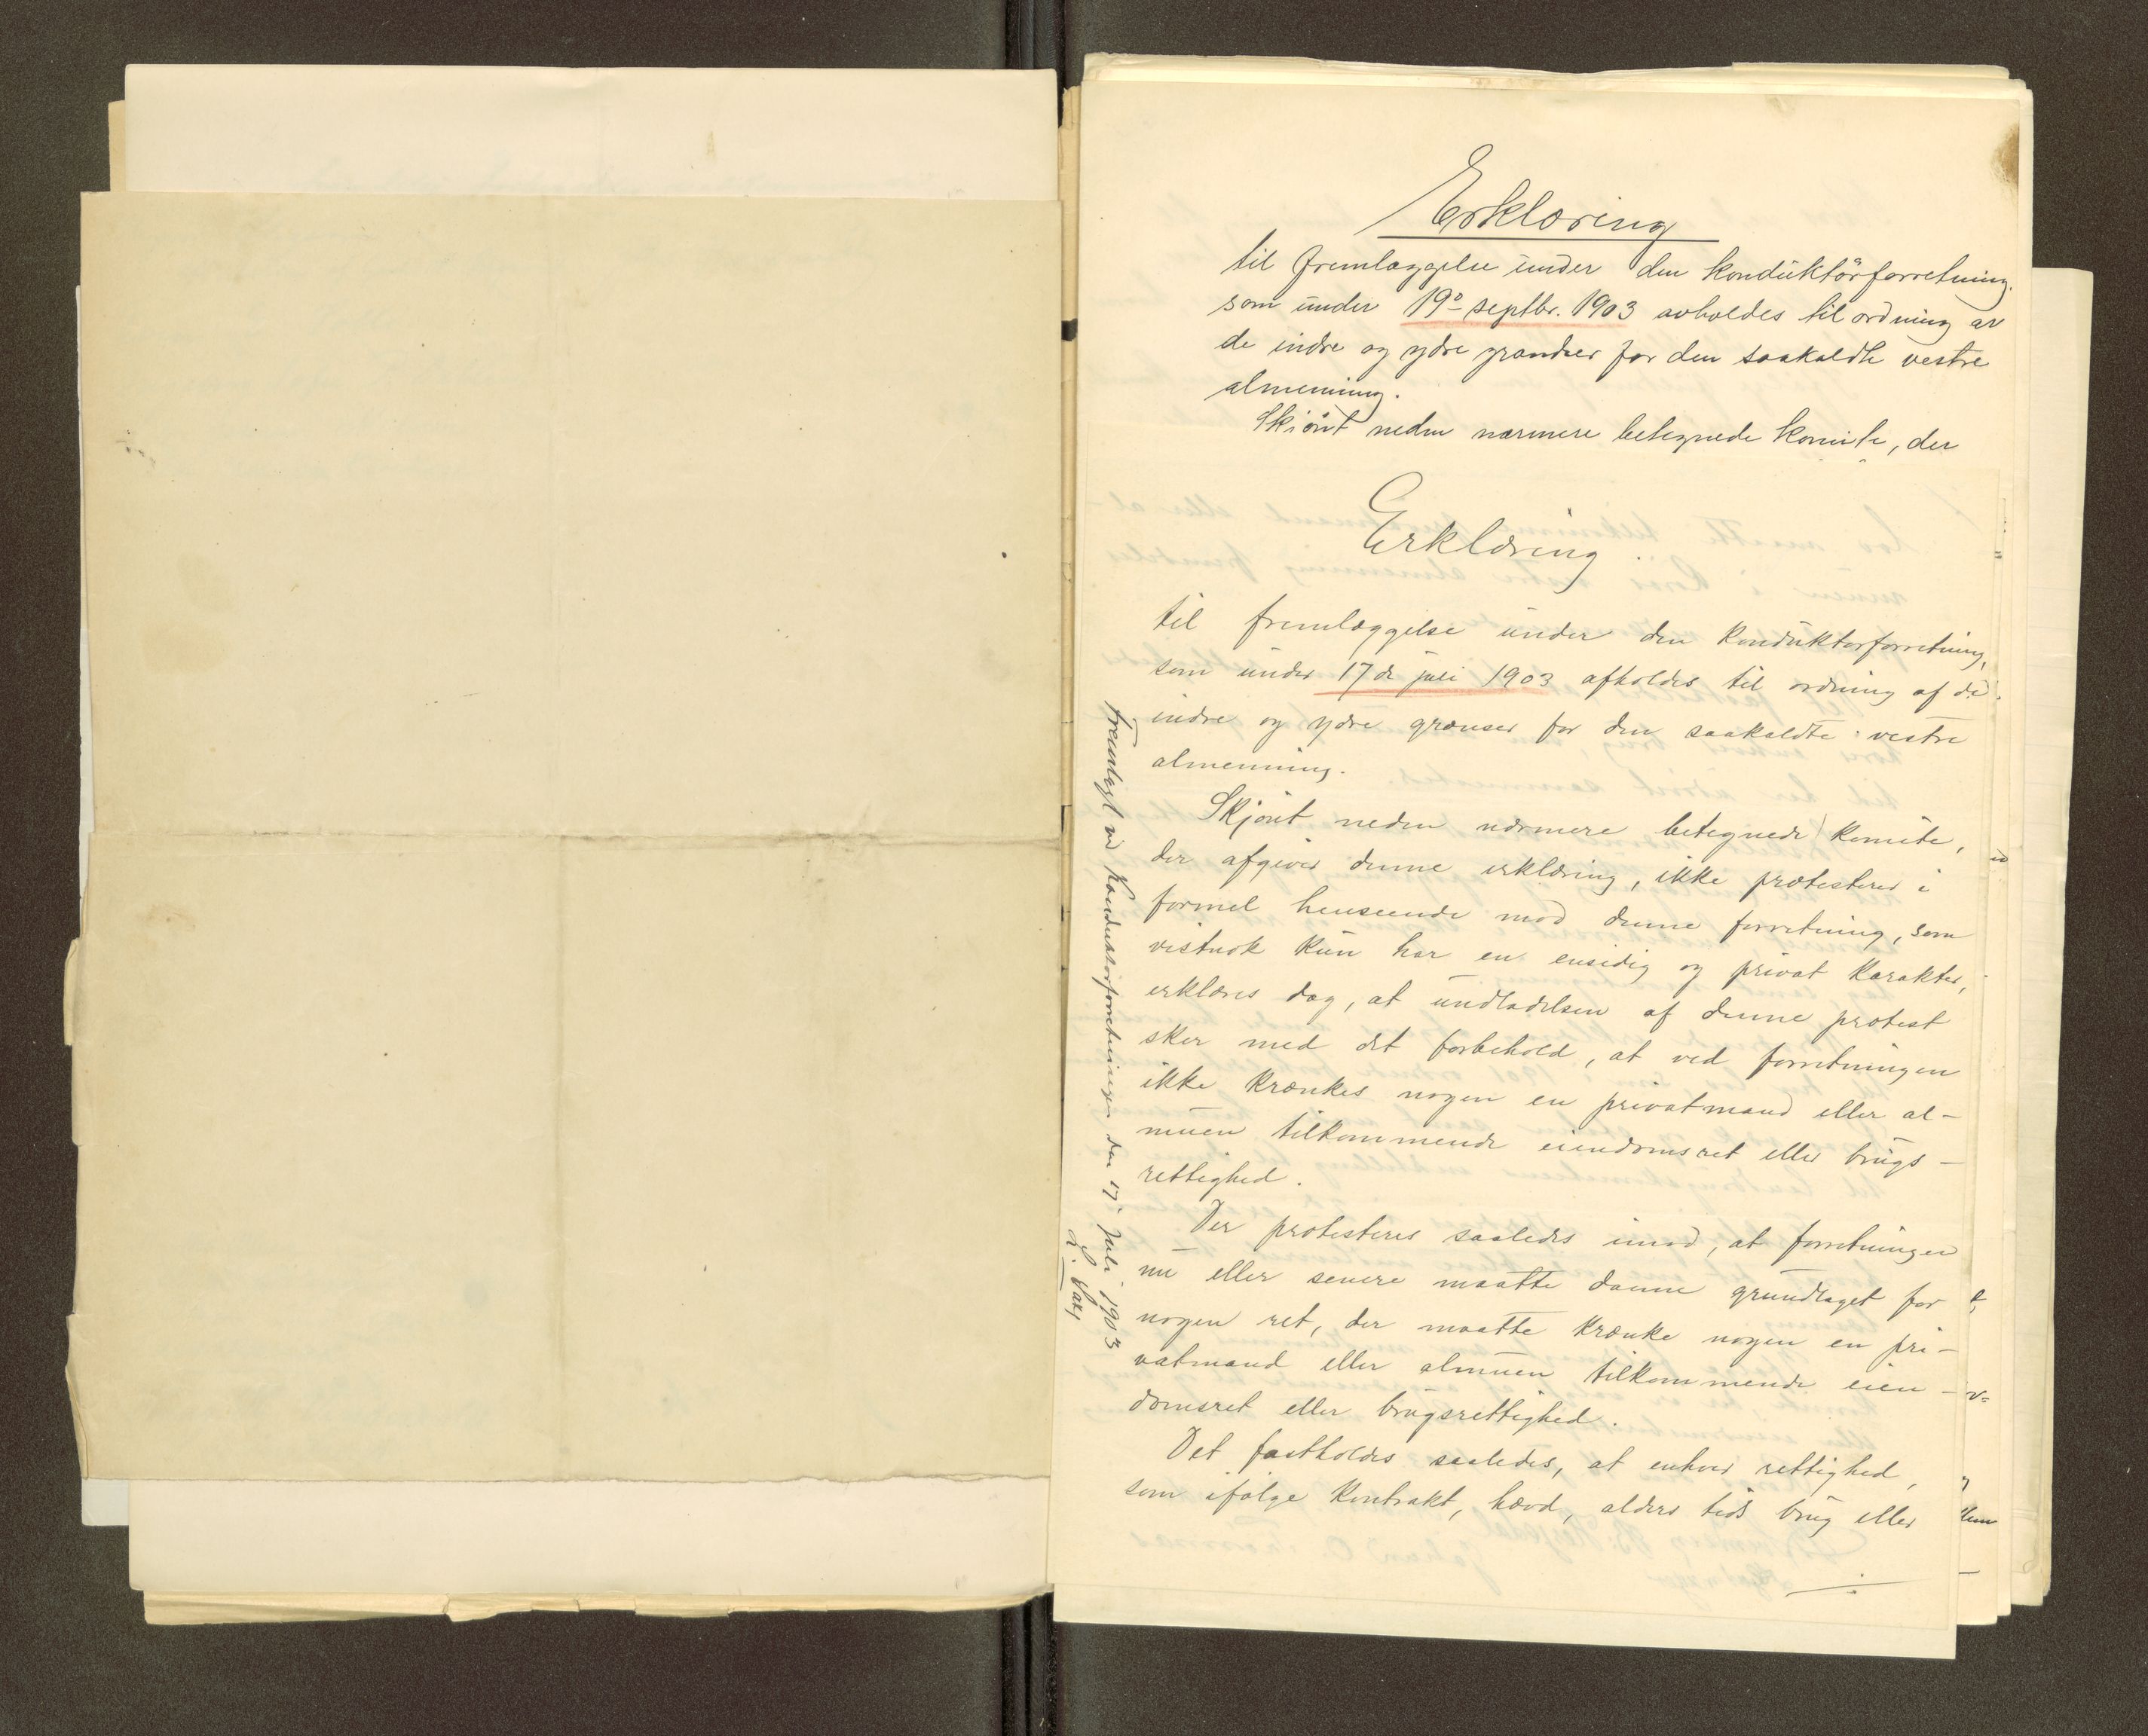 Erklæring
til fremlæggelse under den konduktörforretning.
som under 19d septbr. 1903 avholdes til ordning av
de indre og ydre grændser for den saakaldte vestre
almenning.
Skjønt neden nærmere betegnede komite, der
Erklæring.
til fremlæggelse under den konduktørforretning,
som under 17de juli 1903 afholdes til ordning af de
indre og ydre grænser for den saakaldte vestre
almenning.
Skjønt neden nærmere betegnede komite,
der afgiver denne erklæring, ikke protesterer i
formel henseende mod denne forretning, som
vistnok kun har en ensidig og privat karakter,
erklæres dog, at undladelsen af denne protest
sker med det forbehold, at ved forretningen
ikke krænkes nogen en privatmand eller al-
muen tilkommende eiendomsret eller brugs-
rettighed.
Der protesteres saaledes imod, at forretningen
nu eller senere maatte danne grundlaget for
nogen ret, der maatte krænke nogen en pri-
vatmand eller almuen tilkommende eien-
domsret eller brugsrettighed.
Det fastholdes saaledes, at enhver rettighed,
som ifølge kontrakt, hævd, alders tids brug eller
Fremlagt ved Konduktørforretningen den 17 juli 1903